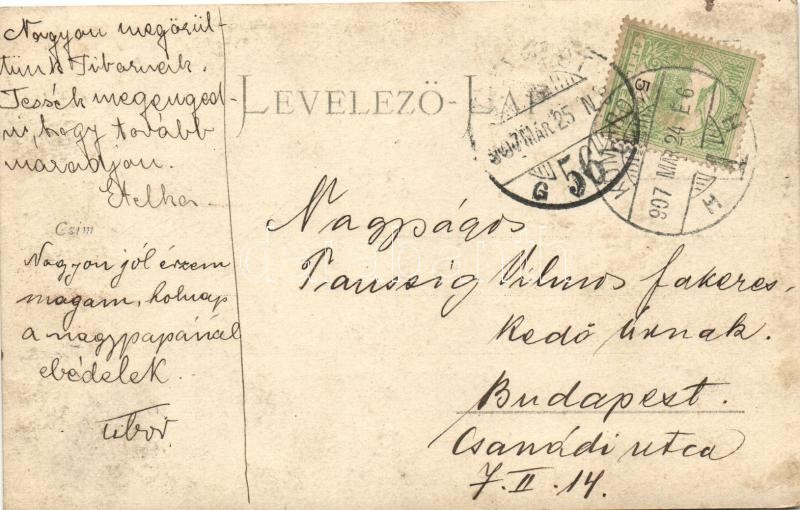 Nagyon megörül-
tünk Tibornak.
Tessék megenged-
ni, hogy tovább
maradjon.
Etelka.
Czím
Nagyon jól érzem
magam, holnap
a nagypapánál
ebédelek.
Tibor.
LEVELEZŐ-LAP
907 MÁR 25
G 56
907 MÁR 24 E6
Nagyságos
Taussig Vilmos fakeres-
kedő úrnak.
Budapest.
Csanádi utca
7. II. 14.